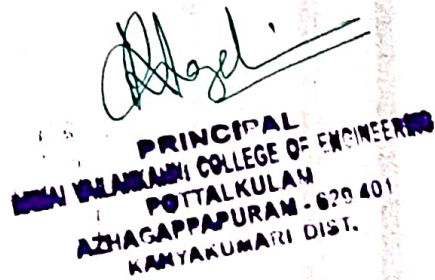 PRINCIPAL
COLLEGE OF ENGINEERING
POTTALKULAM
AZHAGAPPAPURAM - 629 401
KANYAKUMARI DIST.